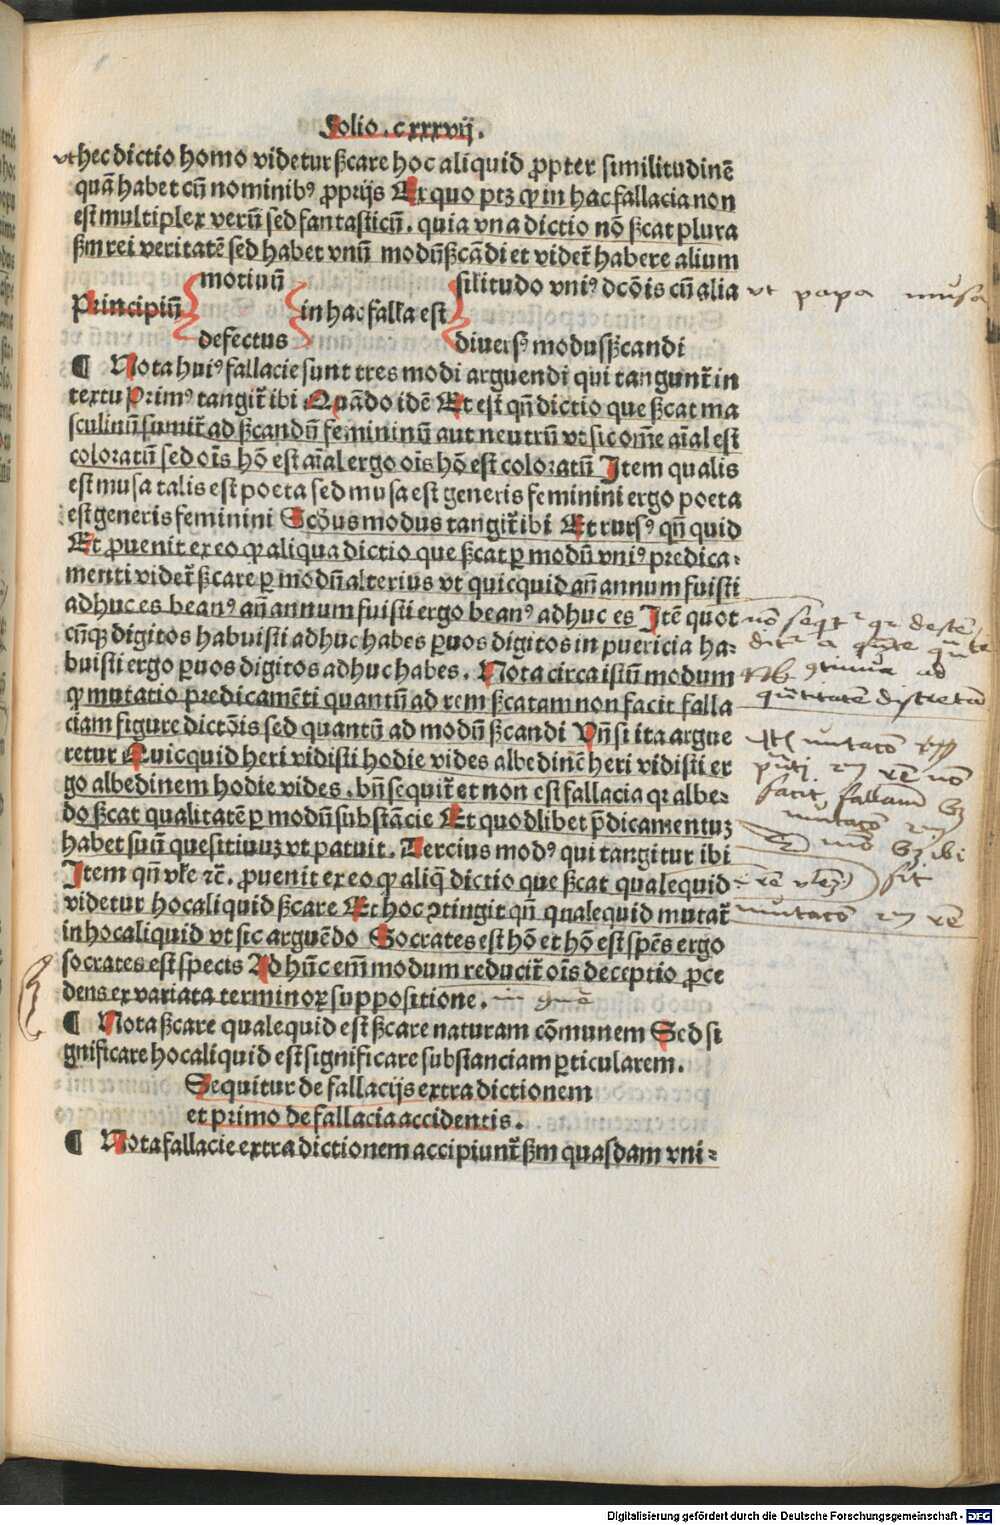 Folio . cxxxvij .
vt hec dictio homo videtur ßcare hoc aliquid ꝓpter similitudinē
quā habet cū nominibꝰ ꝓprijs Ex quo ptꝫ ꝙ in hac fallacia non
est multiplex verū sed fantasticū . quia vna dictio nō ßcat plura
ßm rei veritatē sed habet vnū modū ßcādi et videt̄ habere alium
motiuū similitudo vniꝰ dcōis cū alia vt papa musa
Principiū in hac falla est
defectus diuersꝰ modus ßcandi
¶ Nota huiꝰ fallacie sunt tres modi arguendi qui tangunt̄ in
textu Primꝰ tangit̄ ibi Quādo idē Et est qn̄ dictio que ßcat ma
sculinū sumit̄ ad ßcandū femininū aut neutrū vt sic om̄e aīal est
coloratū sed oīs hō est aīal ergo oīs hō est coloratū Item qualis
est musa talis est poeta sed musa est generis feminini ergo poeta
est generis feminini Scōus modus tangit̄ ibi Et rursꝰ qn̄ quid
Et ꝓuenit ex eo ꝙ aliqua dictio que ßcat ꝑ modū vniꝰ predica-
menti videt̄ ßcare ꝑ modū alterius vt quicquid an̄ annum fuisti
adhuc es beanꝰ an̄ annum fuisti ergo beanꝰ adhuc es Itē quot
cūqꝫ digitos habuisti adhuc habes ꝑuos digitos in puericia ha-
buisti ergo ꝑuos digitos adhuc habes . Nota circa istū modum
ꝙ mutatio p̄dicamēti quantū ad rem ßcatam non facit falla
ciam figure dictōis sed quantū ad modū ßcandi Vn̄ si ita argue
retur Quicquid heri vidisti hodie vides albedinē heri vidisti er
go albedinem hodie vides . bn̄ sequit̄ et non est fallacia qꝛ albe-
do ßcat qualitatē ꝑ modū substācie Et quodlibet p̄dicamentuꝫ
habet suū quesitiuuꝫ vt patuit . Tercius modꝰ qui tangitur ibi
Item qn̄ vłe ⁊c̄ . ꝓuenit ex eo ꝙ aliq̄ dictio que ßcat qualequid
videtur hocaliquid ßcare Et hoc ꝯtingit qn̄ qualequid mutat̄
in hocaliquid vt sic arguēdo Socrates est hō et hō est sp̄es ergo
socrates est species Ad hūc em̄ modum reducit̄ oīs deceptio ꝓce
dens ex variata terminoꝝ suppositione .
¶ Nota ßcare qualequid est ßcare naturam cōmunem Sed si
gnificare hocaliquid est significare substanciam ꝑticularem .
Sequitur de fallacijs extra dictionem
et primo de fallacia accidentis .
¶ Nota fallacie extra dictionem accipiunt̄ ßm quasdam vni-
nō seqt̄
ad
mutacō
facit fallam
mutacō
nō ibi
sit
mutacō rē
Digitalisierung gefördert durch die Deutsche Forschungsgemeinschaft - DFG